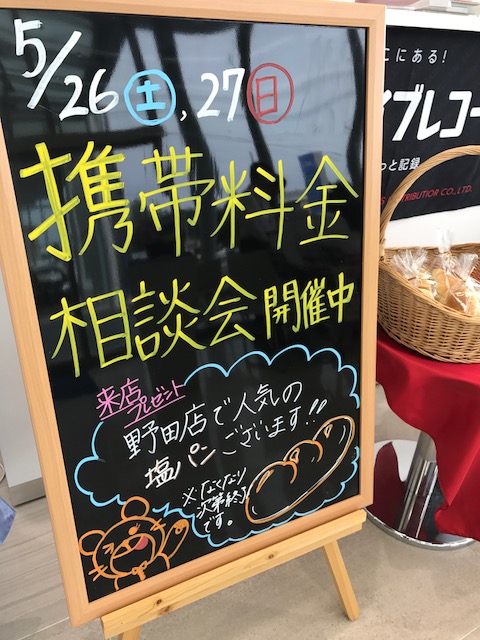 5/26(土),27(日)
携帯料金
相談会開催中
来店
プレゼント
野田店で人気の
塩パンございます!!
※なくなり
次第終了
です。
こにある!
ブルコー
っと記録
TRIBUTIOR CO.,LTD.